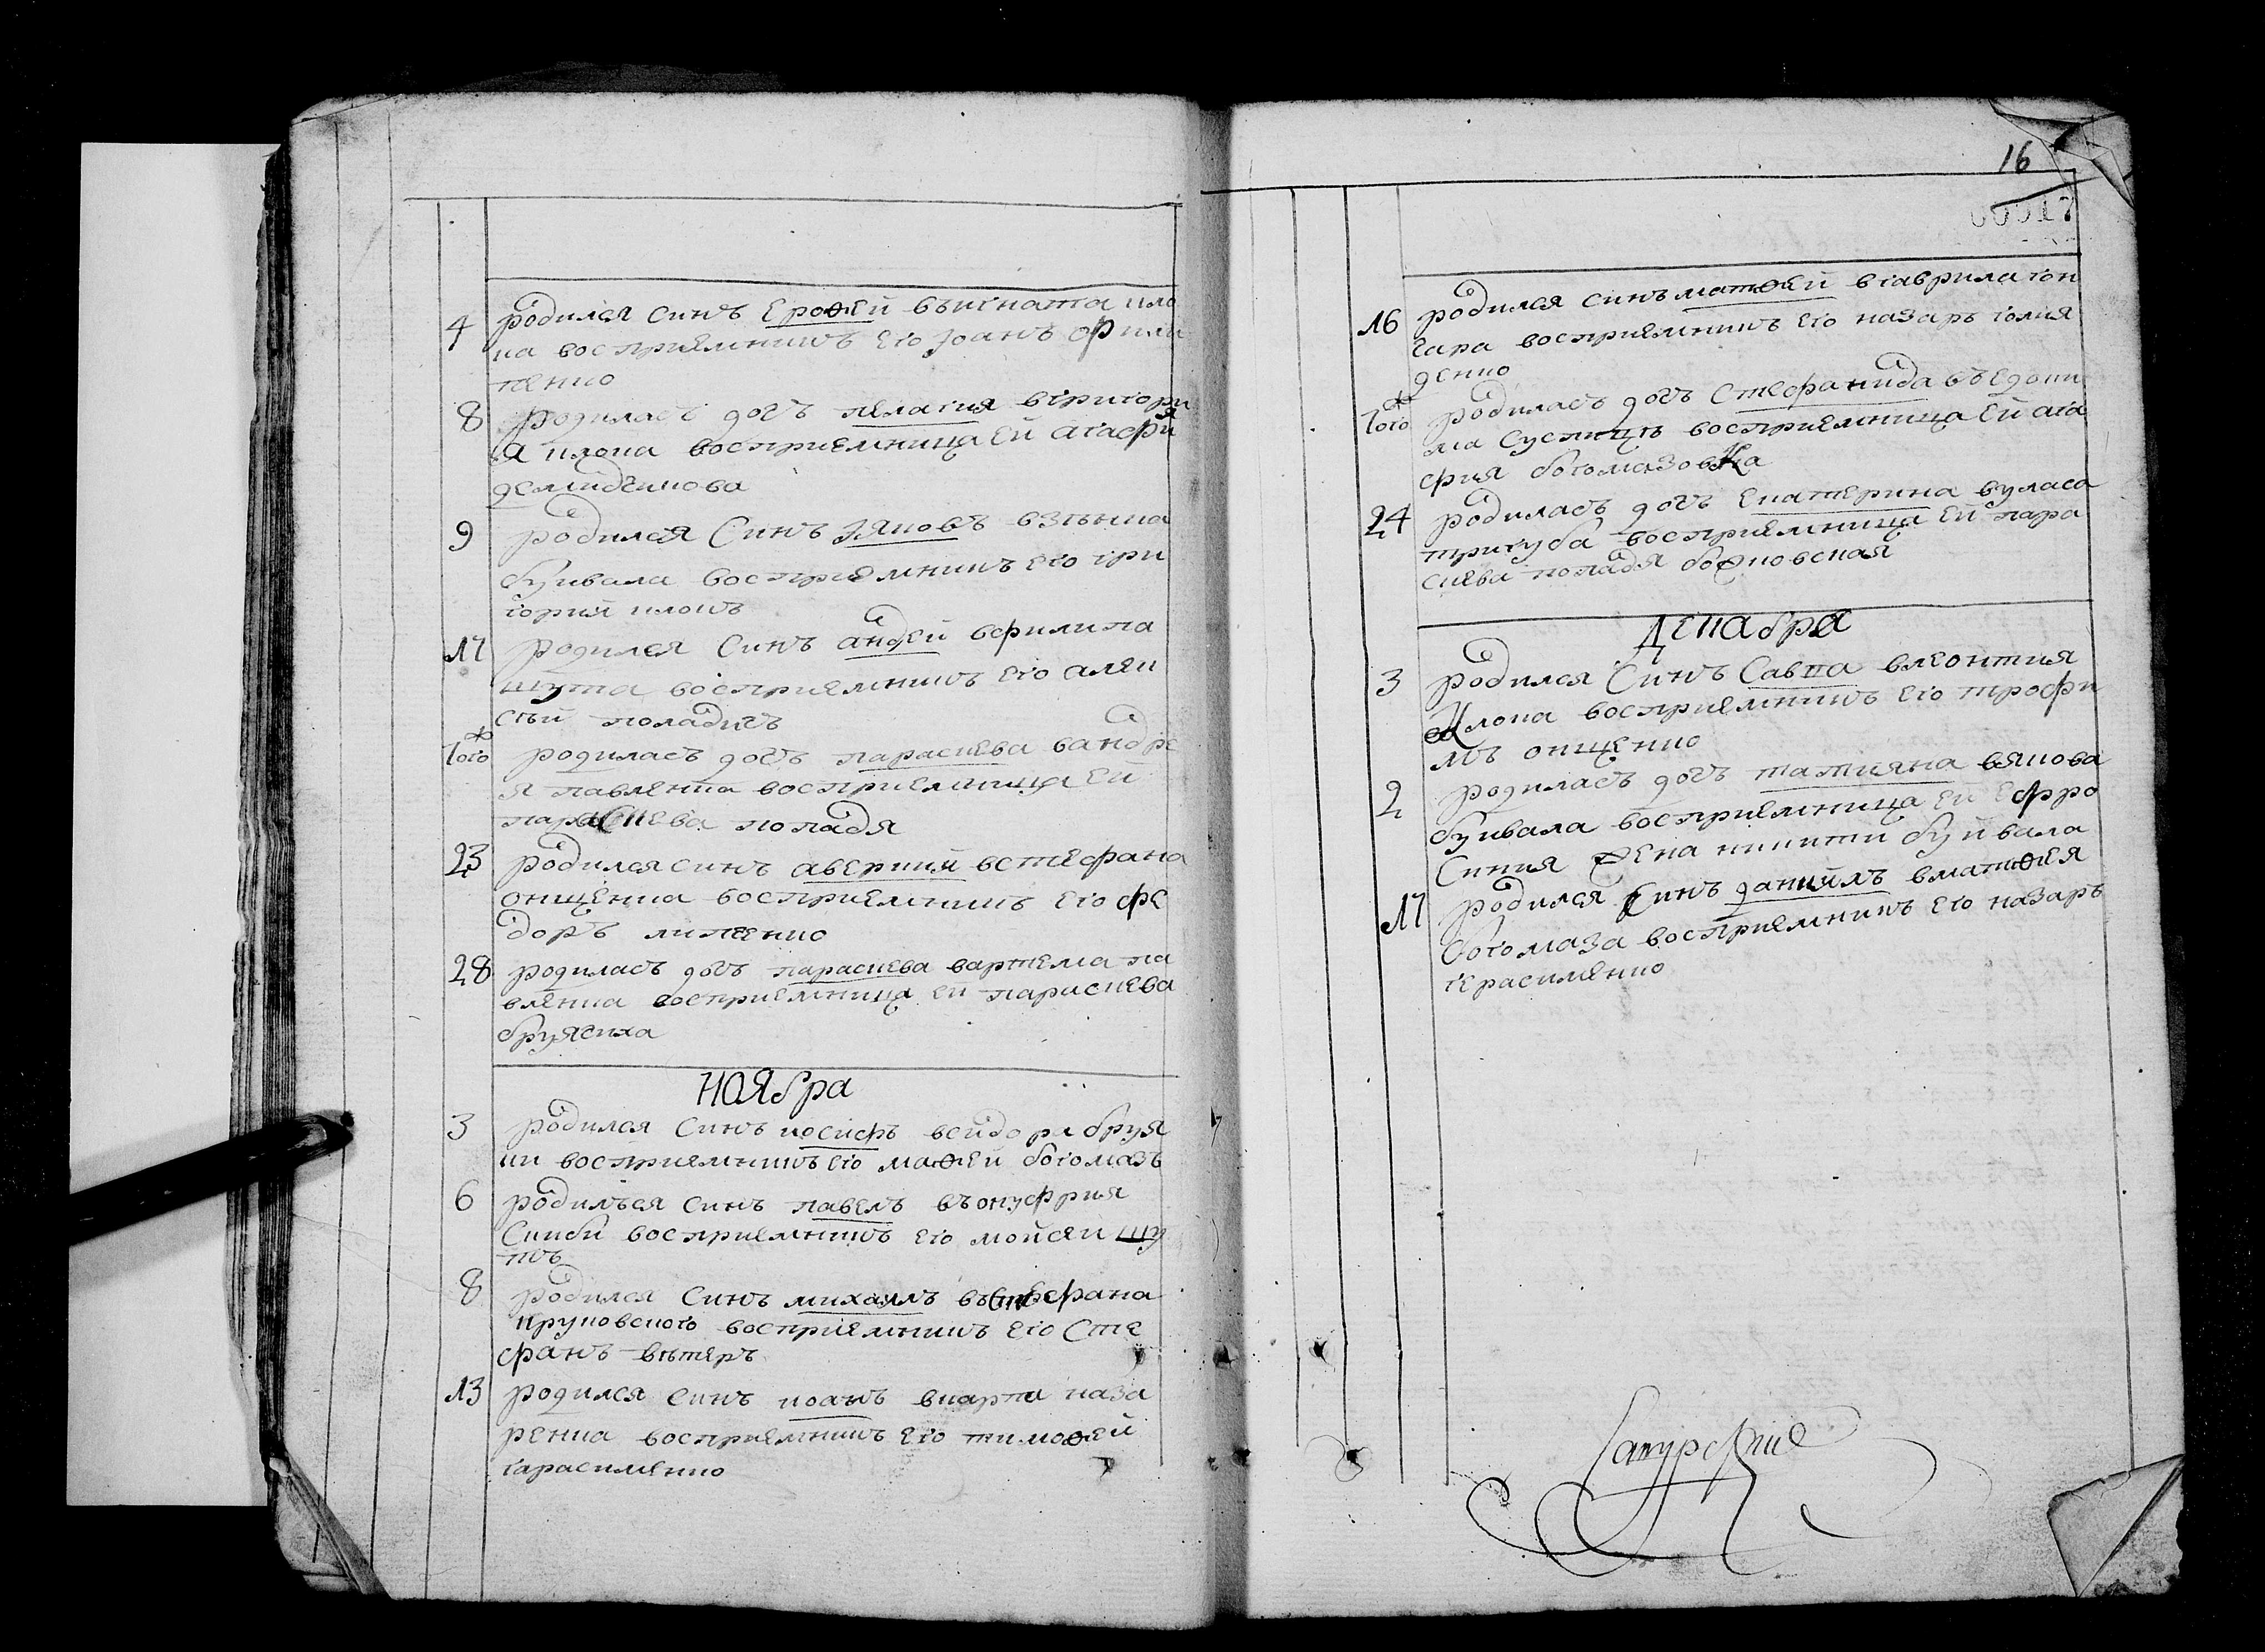 4 родился синъ Ерофей въигната кло
ка восприемникъ его Іоанъ филип
пенко
8 родиласъ дочъ пелагия вгригори
я клока восприемница ей агафия
демидчикова
9 родился Синъ Яковъ взѣнка
буивала восприемникъ его гри
горий клокъ
17 родился Синъ андей вфилипа
шута восприемникъ его алек
сѣй поладичъ
Того родиласъ дочъ параскева вандре
я павленка восприемница ей
параскева попадя
23 родился синъ аверкий встефана
онищенка восприемникъ его фе
доръ липенко
28 родиласъ дочъ параскева вартема па
вленка восприемница ей параскева
бруячиха
Ноября
3 родился синъ иосифъ всидора бруя
ки восприемникъ его мафей богомазъ
6 родилъся синъ павелъ въонуфрия
Скиби восприемникъ его мойсей шу
тъ
8 родился синъ михаилъ въстефана
круковского восприемникъ его Сте
фанъ вѣтеръ
13 родился синъ иоанъ вкарпа наза
ренка восприемникъ его тимофей
гарасименко
16
00017
16 родился синъ матфей вгаврила гон
чара восприемникъ его назаръ голя
денко
Того родиласъ дочъ Стефанида въевдоки
ма сус восприемница ей ага
фия богомазовка
24 родиласъ дочъ Екатерина вуласа
тригуба восприемница ей пара
скева попадя
Декабря
3 родился Синъ Савка влеонтия
клока восприемникъ его трофи
мъ онищенко
2 родиласъ дочъ татияна вякова
буивала восприемница ей Ефро
синия жена никити буйвала
17 родился Синъ даниилъ вматфея
богомаза восприемникъ его назаръ
герасименко